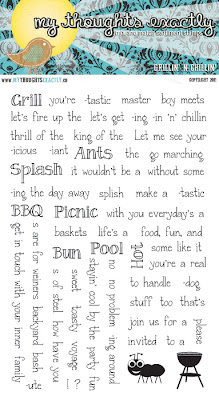 my thoughts exactly
ing and match sentiment stamps
GRILLIN' 'N' CHILLIN'
WWW.MYTHOUGHTSEXACTLY.CO
COPYRIGHT 2011
Grill you're -tastic master boy meets
let's fire up the let's get -ing -in 'n' chillin
thrill of the king of the Let me see your
-icious -iant Ants the go marching
Splash it wouldn't be a without some
-ing the day away splish make a -tastic
BBQ Picnic with you everyday's a
baskets life's a food, fun, and
Bun Pool Hot some like it
you're a real
to handle -dog
stuff too that's
join us for a
invited to a
please
get in touch with your inner family
s are for weiners backyard bash
-ute
s of steel now have you
sweet toasty voyage
! ?
stayin' cool by the party fun
no no problem -ing around